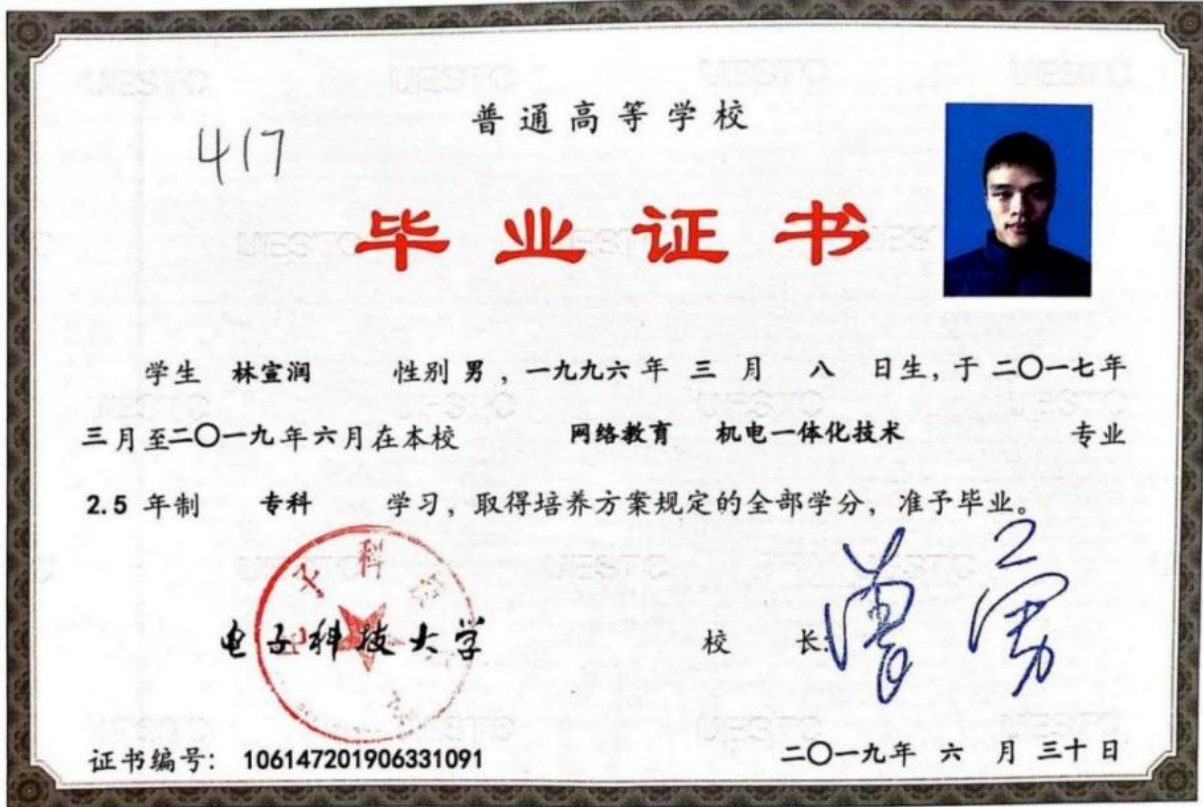 普通高等学校
417
毕业证书
学生 林宣润 性别 男，一九九六年 三 月 八 日生，于二〇一七年
三月至二〇一九年六月在本校 网络教育 机电一体化技术 专业
2.5 年制 专科 学习，取得培养方案规定的全部学分，准予毕业。
电子科技大学 校 长：曾勇
证书编号：106147201906331091 二〇一九年 六 月 三十 日